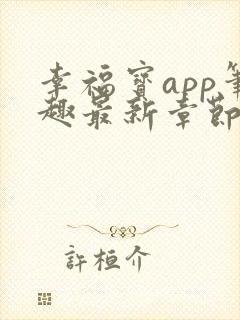 幸福宝app笔
趣最新章節
許桓介